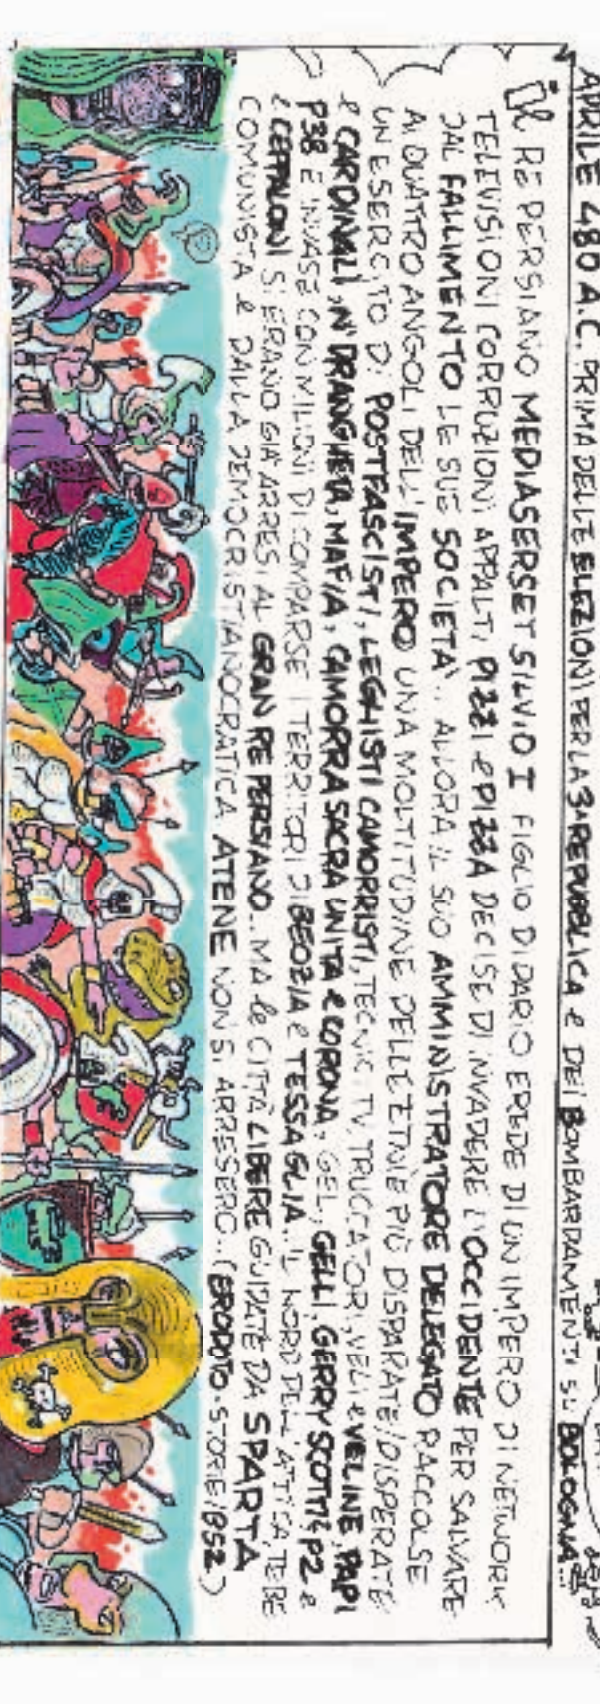 APRILE 480 A.C. PRIMA DELLE ELEZIONI PER LA 3ª REPUBBLICA e DEI BOMBARDAMENTI SU BOLOGNA...
il RE PERSIANO MEDIASERSET SILVIO I FIGLIO DI DARIO EREDE DI UN IMPERO DI NETWORK
TELEVISIONI CORRUZIONI APPALTI, PIZZI e PIZZA DECISE DI INVADERE l'OCCIDENTE PER SALVARE
DAL FALLIMENTO LE SUE SOCIETA'.. ALLORA IL SUO AMMINISTRATORE DELEGATO RACCOLSE
AI QUATTRO ANGOLI DELL'IMPERO UNA MOLTITUDINE DELLE ETNIE PIÙ DISPARATE/DISPERATE
UN ESERCITO DI POSTFASCISTI, LEGHISTI CAMORRISTI, TECNICI TV TRUCCATORI, VELI e VELINE, PAPI
e CARDINALI, N'DRANGHETA, MAFIA, CAMORRA SACRA UNITA e CORONA, GEL, GELLI, GERRY SCOTTI, P2 e
P38 E INVASE CON MILIONI DI COMPARSE I TERRITORI DI BEOZIA e TESSAGLIA.. IL NORD DELL'ATTICA, TEBE
e CEFALONI SI ERANO GIA' ARRESI AL GRAN RE PERSIANO.. MA le CITTÀ LIBERE GUIDATE DA SPARTA
COMUNISTA e DALLA DEMOCRISTIANOCRATICA ATENE NON SI ARRESERO.. (ERODOTO. STORIE/852)